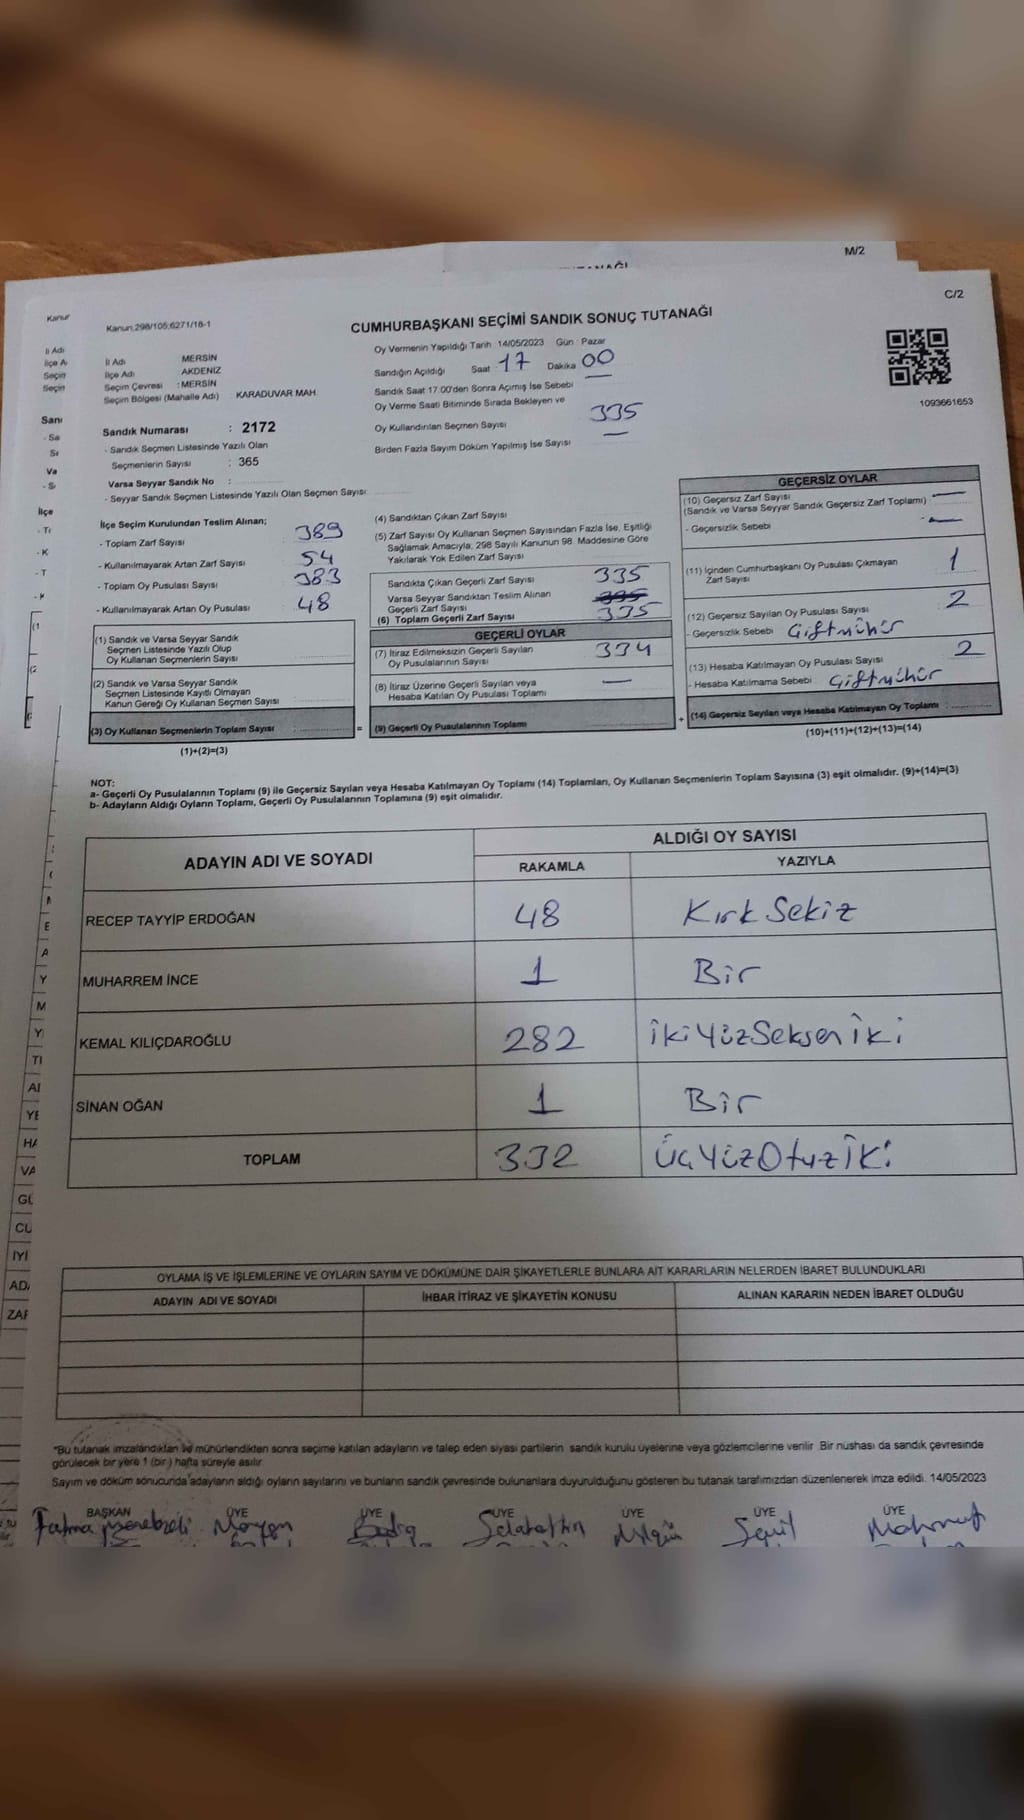 M/2
C/2
Kanun
Kanun;298/105;6271/18-1
CUMHURBAŞKANI SEÇİMİ SANDIK SONUÇ TUTANAĞI
İl Adı MERSİN
İlçe Adı AKDENİZ
Seçim Çevresi : MERSİN
Seçim Bölgesi (Mahalle Adı) : KARADUVAR MAH.
Oy Vermenin Yapıldığı Tarih 14/05/2023 Gün : Pazar
Sandığın Açıldığı Saat 17 Dakika 00
Sandık Saat 17.00'den Sonra Açımış İse Sebebi —
Oy Verme Saati Bitiminde Sırada Bekleyen ve
Oy Kullandırılan Seçmen Sayısı 335
Birden Fazla Sayım Döküm Yapılmış İse Sayısı —
1093661653
Sandık Numarası : 2172
- Sandık Seçmen Listesinde Yazılı Olan
Seçmenlerin Sayısı : 365
Varsa Seyyar Sandık No :
- Seyyar Sandık Seçmen Listesinde Yazılı Olan Seçmen Sayısı:
İlçe Seçim Kurulundan Teslim Alınan;
- Toplam Zarf Sayısı 389
- Kullanılmayarak Artan Zarf Sayısı 54
- Toplam Oy Pusulası Sayısı 383
- Kullanılmayarak Artan Oy Pusulası 48
(1) Sandık ve Varsa Seyyar Sandık
Seçmen Listesinde Yazılı Olup
Oy Kullanan Seçmenlerin Sayısı
(2) Sandık ve Varsa Seyyar Sandık
Seçmen Listesinde Kayıtlı Olmayan
Kanun Gereği Oy Kullanan Seçmen Sayısı
(3) Oy Kullanan Seçmenlerin Toplam Sayısı
(1)+(2)=(3)
=
(4) Sandıktan Çıkan Zarf Sayısı
(5) Zarf Sayısı Oy Kullanan Seçmen Sayısından Fazla İse, Eşitliği
Sağlamak Amacıyla; 298 Sayılı Kanunun 98. Maddesine Göre
Yakılarak Yok Edilen Zarf Sayısı
Sandıkta Çıkan Geçerli Zarf Sayısı 335
Varsa Seyyar Sandıktan Teslim Alınan
Geçerli Zarf Sayısı 335
(6) Toplam Geçerli Zarf Sayısı 335
GEÇERLİ OYLAR
(7) İtiraz Edilmeksizin Geçerli Sayılan
Oy Pusulalarının Sayısı 334
(8) İtiraz Üzerine Geçerli Sayılan veya
Hesaba Katılan Oy Pusulası Toplamı —
(9) Geçerli Oy Pusulalarının Toplamı
+
GEÇERSİZ OYLAR
(10) Geçersiz Zarf Sayısı
(Sandık ve Varsa Seyyar Sandık Geçersiz Zarf Toplamı) —
- Geçersizlik Sebebi —
(11) İçinden Cumhurbaşkanı Oy Pusulası Çıkmayan
Zarf Sayısı 1
(12) Geçersiz Sayılan Oy Pusulası Sayısı 2
- Geçersizlik Sebebi Çiftmühür
(13) Hesaba Katılmayan Oy Pusulası Sayısı 2
- Hesaba Katılmama Sebebi Çiftmühür
(14) Geçersiz Sayılan veya Hesaba Katılmayan Oy Toplamı :
(10)+(11)+(12)+(13)=(14)
NOT:
a- Geçerli Oy Pusulalarının Toplamı (9) ile Geçersiz Sayılan veya Hesaba Katılmayan Oy Toplamı (14) Toplamları, Oy Kullanan Seçmenlerin Toplam Sayısına (3) eşit olmalıdır. (9)+(14)=(3)
b- Adayların Aldığı Oyların Toplamı, Geçerli Oy Pusulalarının Toplamına (9) eşit olmalıdır.
ADAYIN ADI VE SOYADI
ALDIĞI OY SAYISI
RAKAMLA YAZIYLA
RECEP TAYYİP ERDOĞAN 48 Kırk Sekiz
MUHARREM İNCE 1 Bir
KEMAL KILIÇDAROĞLU 282 ikiYüzSeksen iki
SİNAN OĞAN 1 Bir
TOPLAM 332 ÜçYüzOtuziki
OYLAMA İŞ VE İŞLEMLERİNE VE OYLARIN SAYIM VE DÖKÜMÜNE DAİR ŞİKAYETLERLE BUNLARA AİT KARARLARIN NELERDEN İBARET BULUNDUKLARI
ADAYIN ADI VE SOYADI İHBAR İTİRAZ VE ŞİKAYETİN KONUSU ALINAN KARARIN NEDEN İBARET OLDUĞU
"Bu tutanak imzalandıktan ve mühürlendikten sonra seçime katılan adayların ve talep eden siyasi partilerin sandık kurulu üyelerine veya gözlemcilerine verilir. Bir nüshası da sandık çevresinde
görülecek bir yere 1 (bir) hafta süreyle asılır.
Sayım ve döküm sonucunda adayların aldığı oyların sayılarını ve bunların sandık çevresinde bulunanlara duyurulduğunu gösteren bu tutanak tarafımızdan düzenlenerek imza edildi. 14/05/2023
BAŞKAN ÜYE ÜYE ÜYE ÜYE ÜYE ÜYE
Fatma Meryem Selahattin Nilgün Mahmut